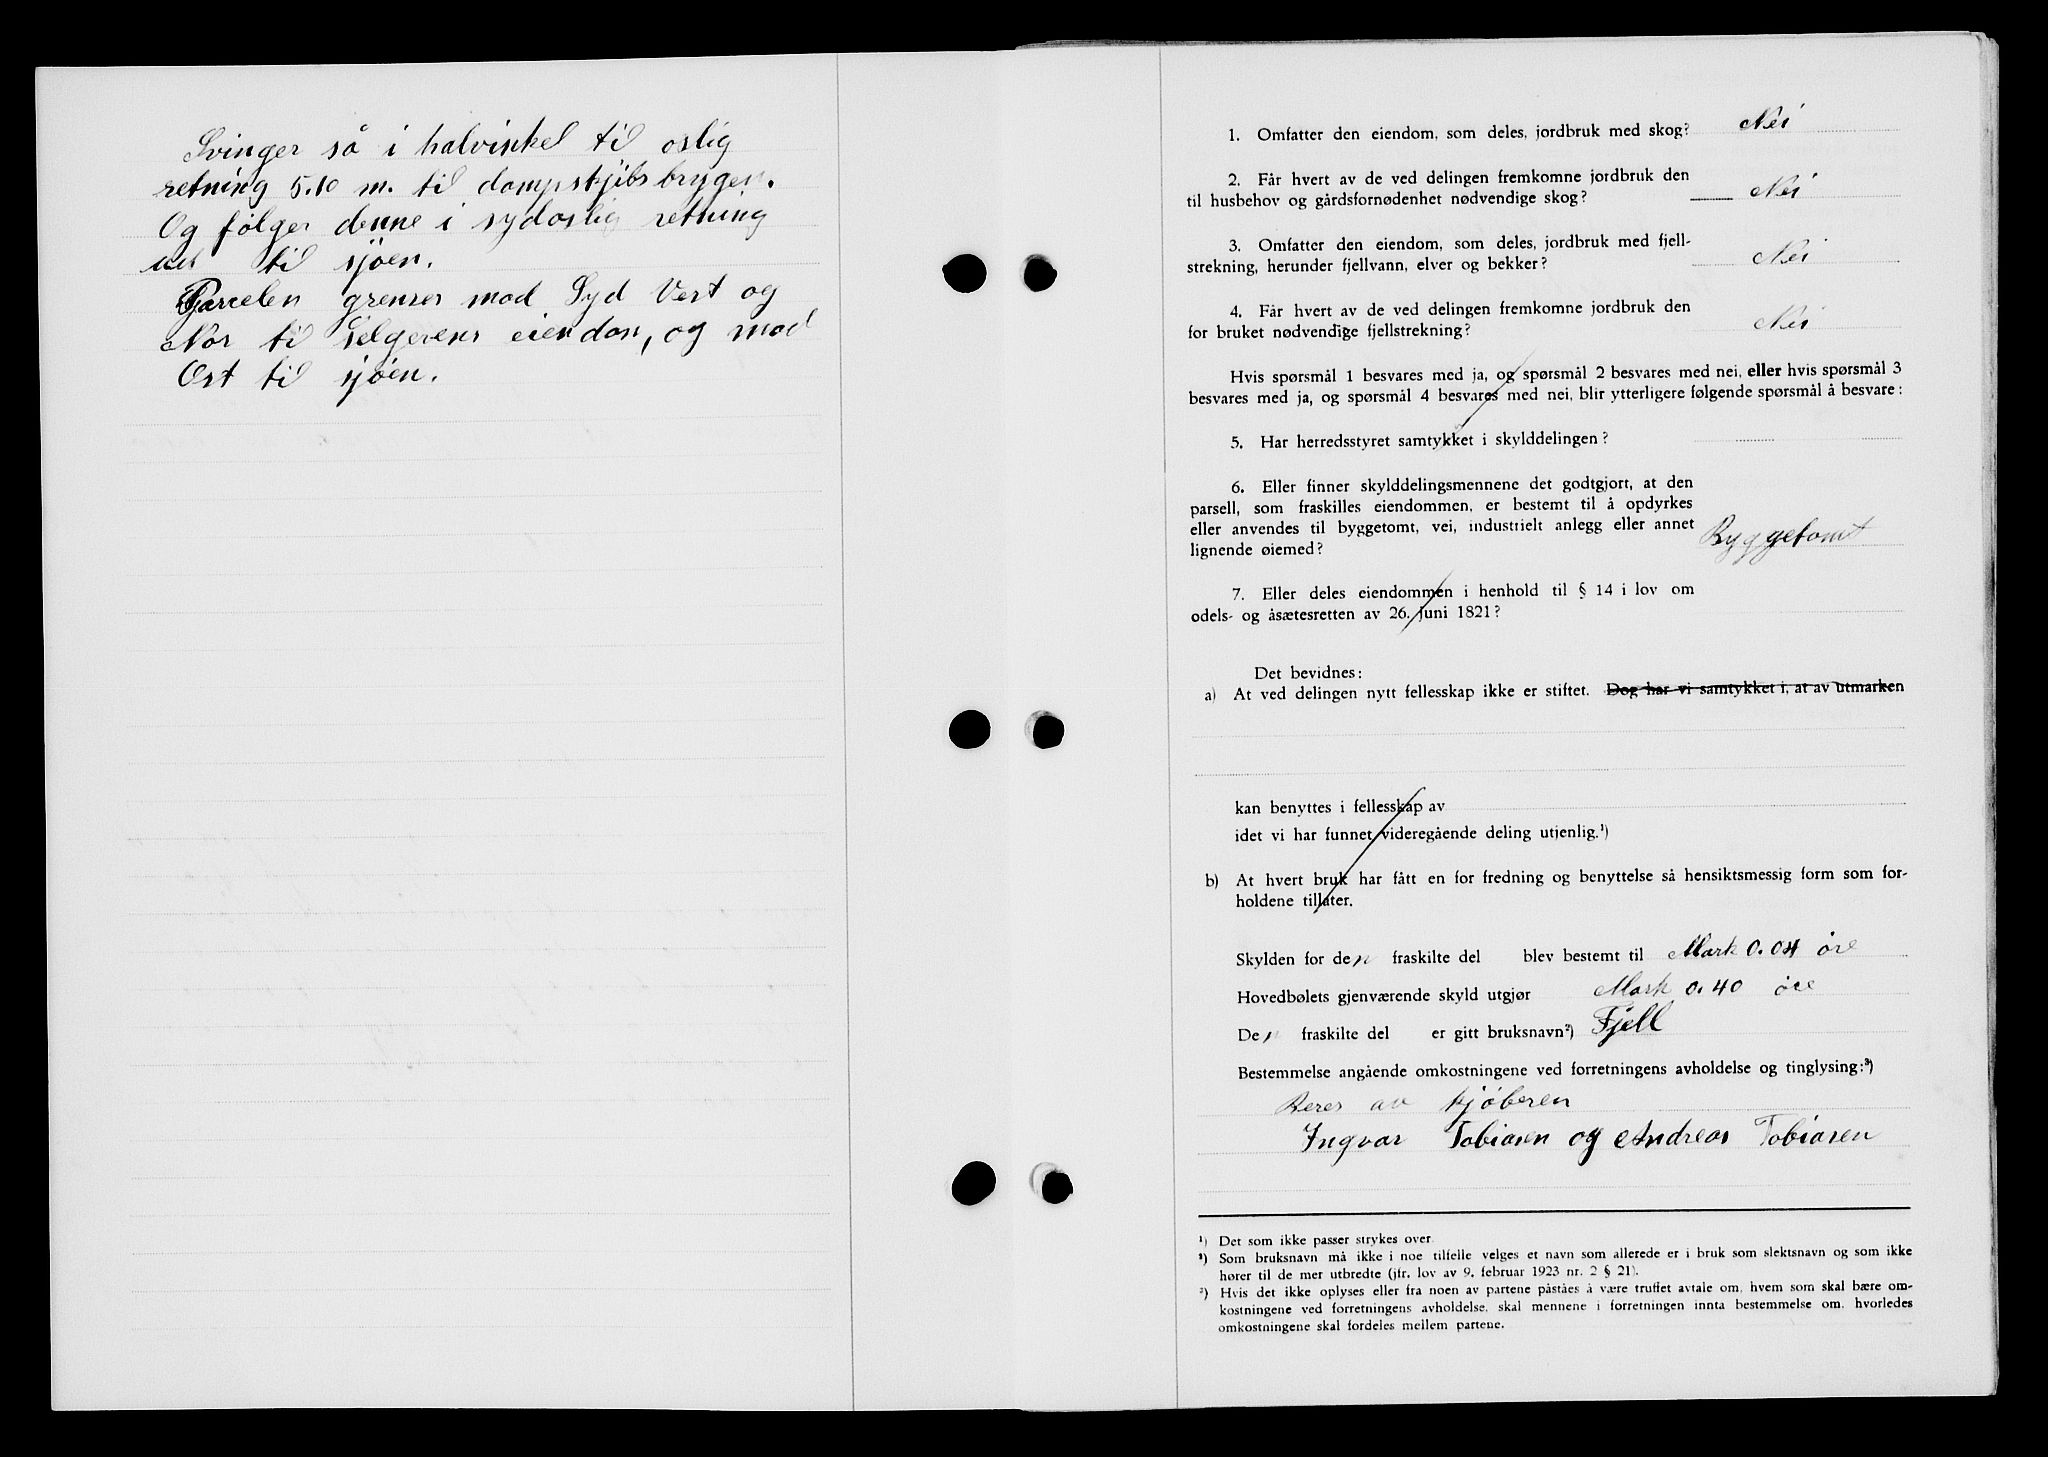 Svinger så i halvinkel til oslig
retning 5.10 m. til dampskjibsbrygen.
Og følger denne i sydoslig retning
ut til sjøen.
Parcelen grenser mod Syd Vest og
Nor til selgerens eiendom, og mod
Ost til sjøen.
1. Omfatter den eiendom, som deles, jordbruk med skog? Nei
2. Får hvert av de ved delingen fremkomne jordbruk den
til husbehov og gårdsfornødenhet nødvendige skog? Nei
3. Omfatter den eiendom, som deles, jordbruk med fjell-
strekning, herunder fjellvann, elver og bekker? Nei
4. Får hvert av de ved delingen fremkomne jordbruk den
for bruket nødvendige fjellstrekning? Nei
Hvis spørsmål 1 besvares med ja, og spørsmål 2 besvares med nei, eller hvis spørsmål 3
besvares med ja, og spørsmål 4 besvares med nei, blir ytterligere følgende spørsmål å besvare:
5. Har herredsstyret samtykket i skylddelingen?
6. Eller finner skylddelingsmennene det godtgjort, at den
parsell, som fraskilles eiendommen, er bestemt til å opdyrkes
eller anvendes til byggetomt, vei, industrielt anlegg eller annet
lignende øiemed? Byggetomt
7. Eller deles eiendommen i henhold til § 14 i lov om
odels- og åsætesretten av 26. juni 1821?
Det bevidnes:
a) At ved delingen nytt fellesskap ikke er stiftet. Dog har vi samtykket i, at av utmarken
kan benyttes i fellesskap av
idet vi har funnet videregående deling utjenlig.¹)
b) At hvert bruk har fått en for fredning og benyttelse så hensiktsmessig form som for-
holdene tillater.
Skylden for den fraskilte del blev bestemt til Mark 0.04 øre
Hovedbølets gjenværende skyld utgjør Mark 0.40 øre
Den fraskilte del er gitt bruksnavn²) Fjell
Bestemmelse angående omkostningene ved forretningens avholdelse og tinglysing:³)
Beres av kjøberen
Ingvar Tobiasen og Andreas Tobiasen
¹) Det som ikke passer strykes over.
²) Som bruksnavn må ikke i noe tilfelle velges et navn som allerede er i bruk som slektsnavn og som ikke
hører til de mer utbredte (jfr. lov av 9. februar 1923 nr. 2 § 21).
³) Hvis det ikke oplyses eller fra noen av partene påståes å være truffet avtale om, hvem som skal bære om-
kostningene ved forretningens avholdelse, skal mennene i forretningen innta bestemmelse om, hvorledes
omkostningene skal fordeles mellem partene.